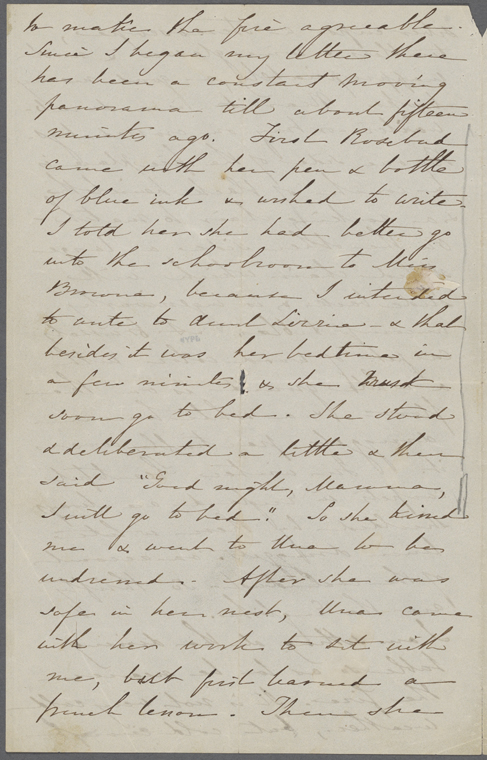 to make the fire agreeable.
Since I began my letter there
has been a constant moving
panorama till about fifteen
minutes ago. First Rosebud
came with her pen & bottle
of blue ink & wished to write.
I told her she had better go
into the schoolroom to Miss
Browne, because I intended
to write to Aunt Lizzie - & that
besides it was her bedtime in
a few minutes, & she must
soon go to bed. She stood
& deliberated a little & then
said "Good night, Mamma,
I will go to bed." So she kissed
me & went to Una to be
undressed. After she was
safe in her nest, Una came
with her work to sit with
me, but first learned a
french lesson. Then she